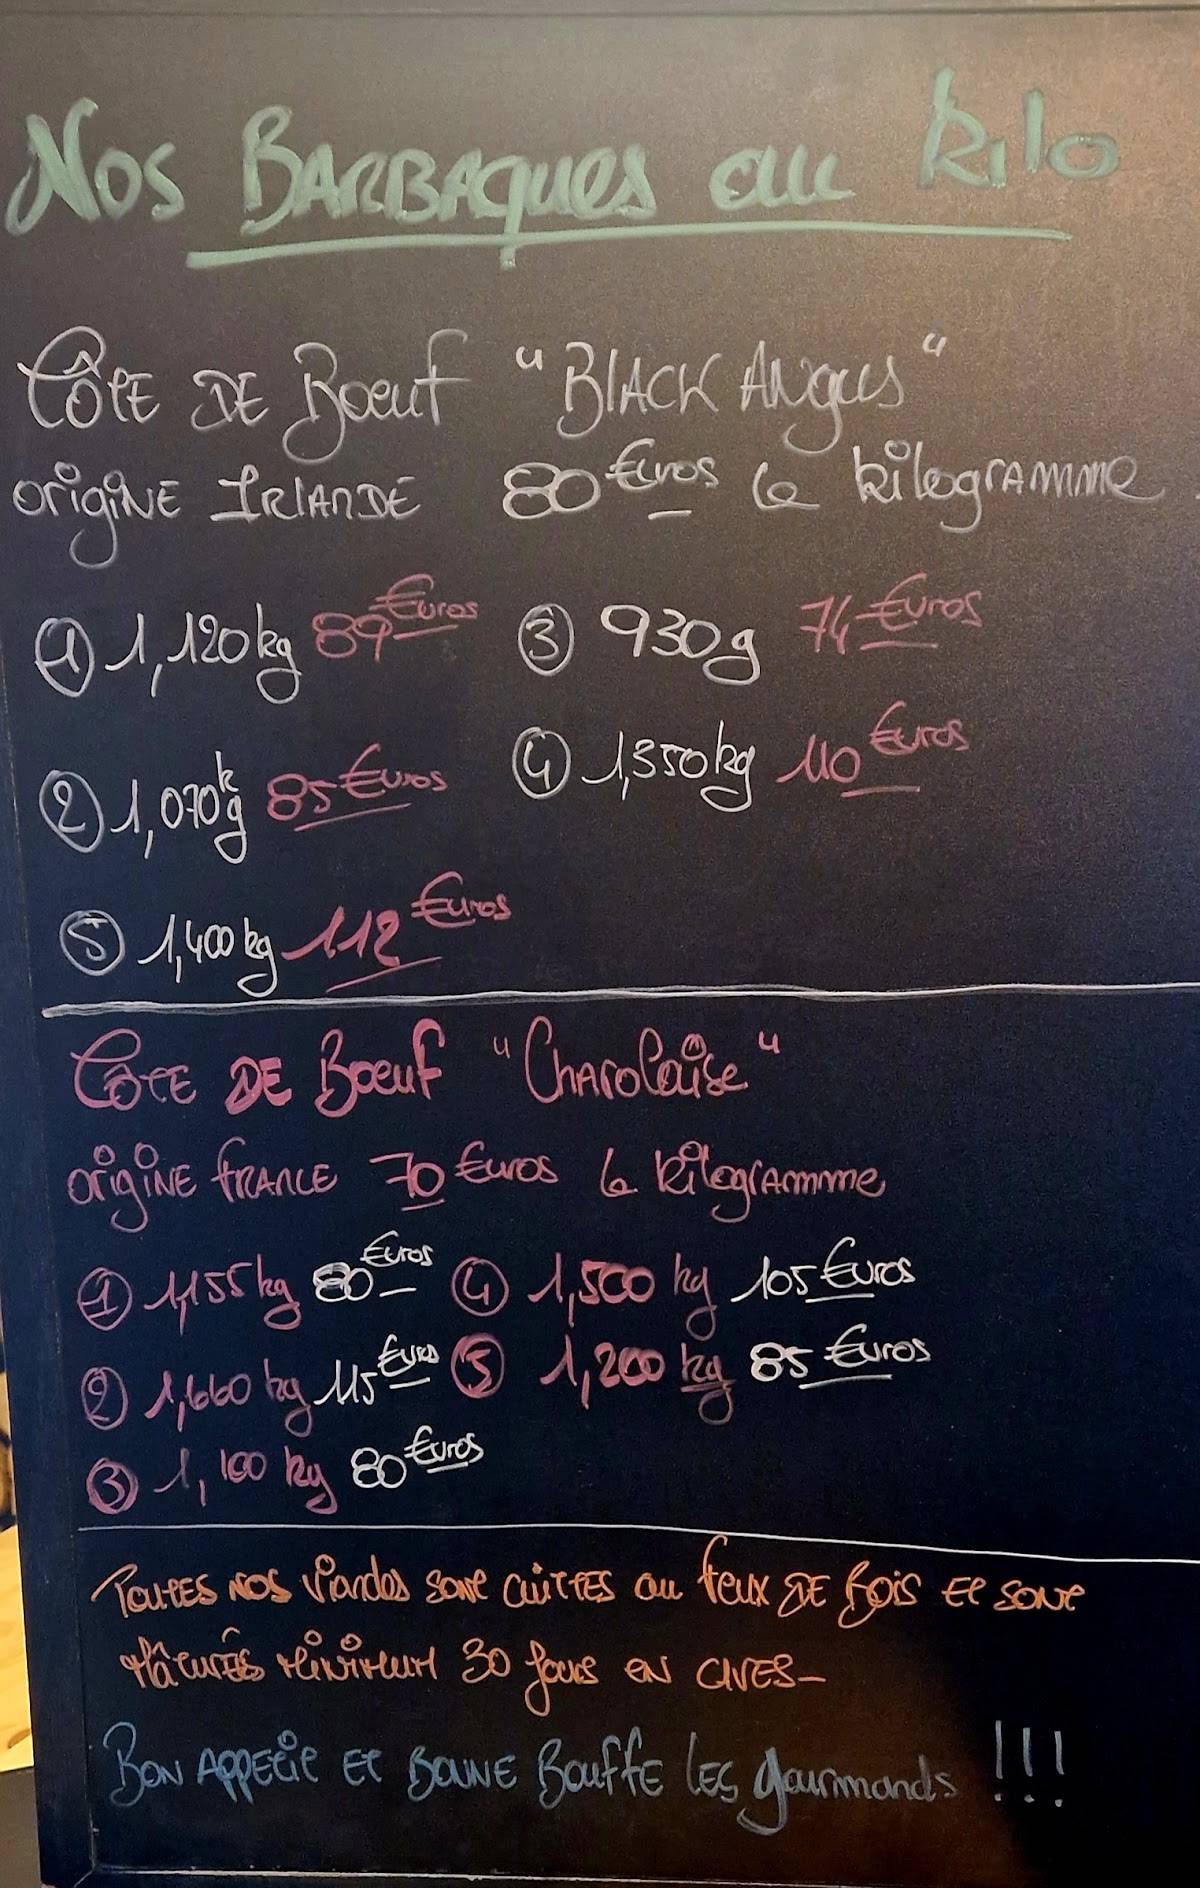 Nos BARBAques au kilo
Côte DE Boeuf "BLACK ANgus"
origiNE IRLANDE 80 €uros le kilogramme
① 1,120 kg 89 €uros ③ 930g 74 €uros
② 1,070 kg 85 €uros ④ 1,350 kg 110 €uros
⑤ 1,400 kg 112 €uros
Côte DE Boeuf "Charolaise"
origiNE fRANCE 70 €uros le kilogramme
① 1,155 kg 80 €uros ④ 1,500 kg 105 €uros
② 1,660 kg 115 €uros ⑤ 1,200 kg 85 €uros
③ 1,100 kg 80 €uros
Toutes NOS Viandes sont cuittes au feux DE bois Et sont
Mâturés Minimum 30 jours en caves
Bon Appetit Et Bonne Bouffe Les gourmands !!!